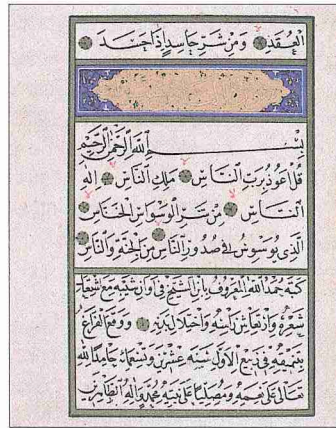 العقد ومن شر حاسد اذا حسد
بسم الله الرحمن الرحيم
قل اعوذ برب الناس ملك الناس اله
الناس من شر الوسواس الخناس
الذى يوسوس فى صدور الناس من الجنة والناس
كتبه حمد الله المعروف بابن الشيخ فى اوان شيبه مع
شعره وارتعاش رأسه ووقع الفراغ
فى ربيع الاول سنه عشرين وتسعمائة حامدا لله
تعالى على نعمه ومصليا على نبيه محمد واله الطاهرين